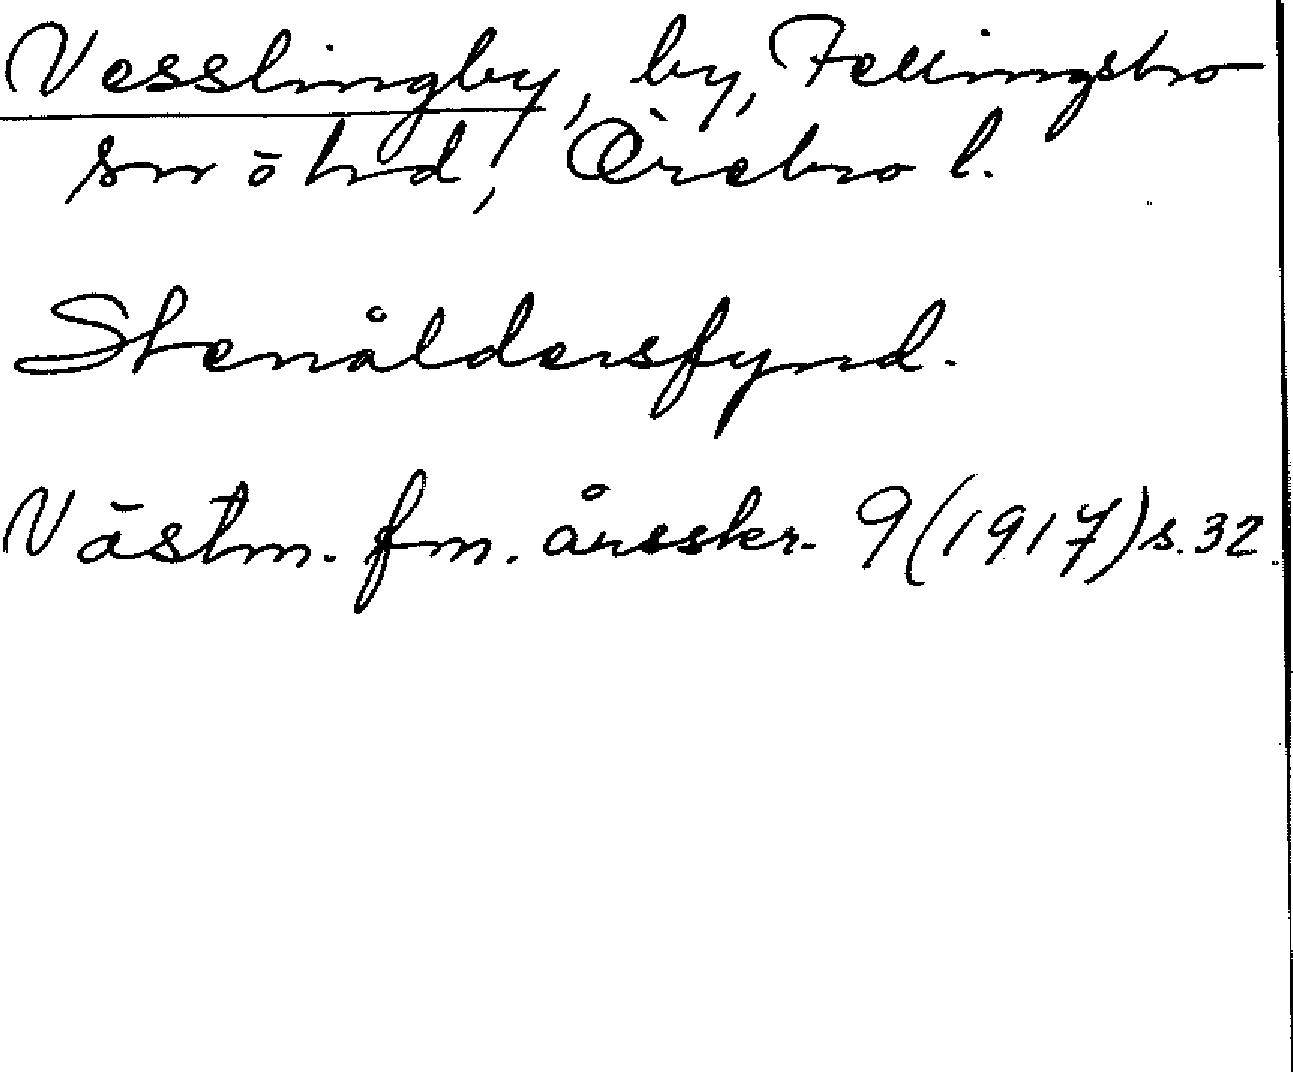 Vesslingby, by, Fellingsbro
sn ö hd, Örebro l.
Stenåldersfynd.
Västm. fm. årsskr. 9 (1917) s. 32.